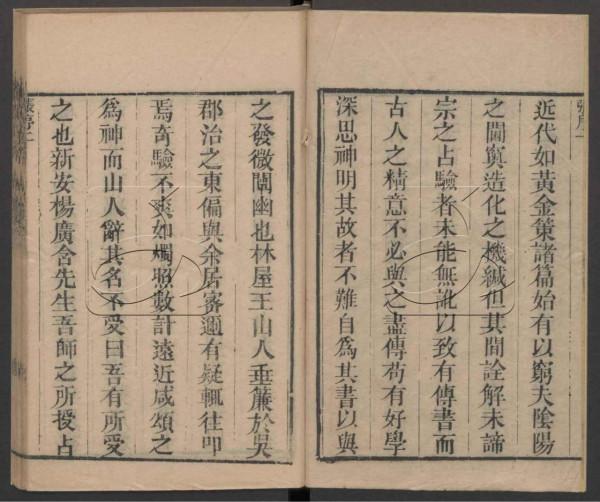 近代如黃金策諸篇始有以窮夫陰陽
之闔奧造化之機緘但其間詮解未諦
宗之占驗者未能無訛以致有傳書而
古人之精意不必與之盡傳苟有好學
深思神明其故者不難自為其書以與
之發微闡幽也林屋王山人垂簾於吳
郡治之東偏與余居密邇有疑輒往叩
焉奇驗不爽如燭照數計遠近咸頌之
為神而山人辭其名不受曰吾有所受
之也新安楊廣含先生吾師之所授占
張序二